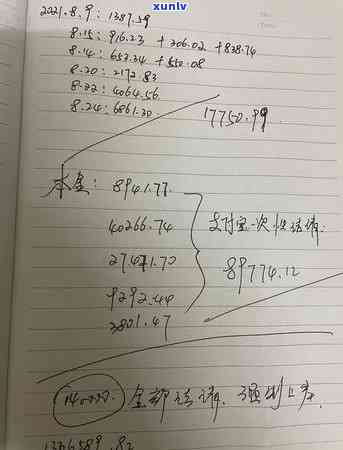 xunlv
2021.8.9:1387.59
8.15:916.23 + 206.02 +838.74
8.14:652.34 + 550.08
8.20:2172.83
8.22:4064.56
8.24:6861.30
17750.99
本金:8941.77
40266.74
27471.70
9292.44
3801.47
支付宝一次性结清:
89774.12
140000. 全部结清.强制上岸.